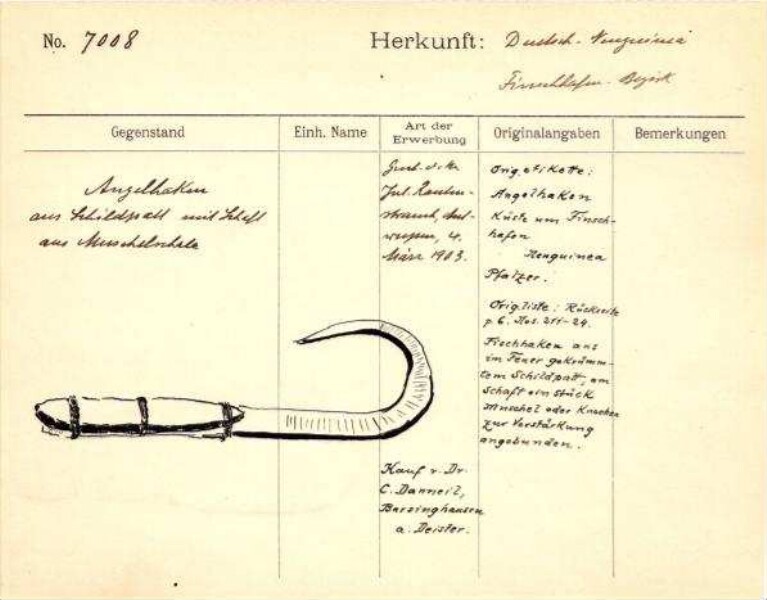 No. 7008
Herkunft: Deutsch-Neuguinea
Finschhafen-Bezirk
Gegenstand
Einh. Name
Art der Erwerbung
Originalangaben
Bemerkungen
Angelhaken
aus Schildpatt mit Schaft
aus Muschelschale
Jul. Rauten-
strauch, Ant-
werpen, 4.
März 1903.
Kauf v. Dr.
C. Danneil,
Barsinghausen
a. Deister.
Orig. etikette:
Angelhaken
Küste um Finsch-
hafen
Neuguinea
Pfalzer.
Orig. liste: Rückseite
p. 6. Nos. 211-24.
Fischhaken aus
im Feuer gekrümm-
tem Schildpatt, am
Schaft ein Stück
Muschel oder Knochen
zur Verstärkung
angebunden.